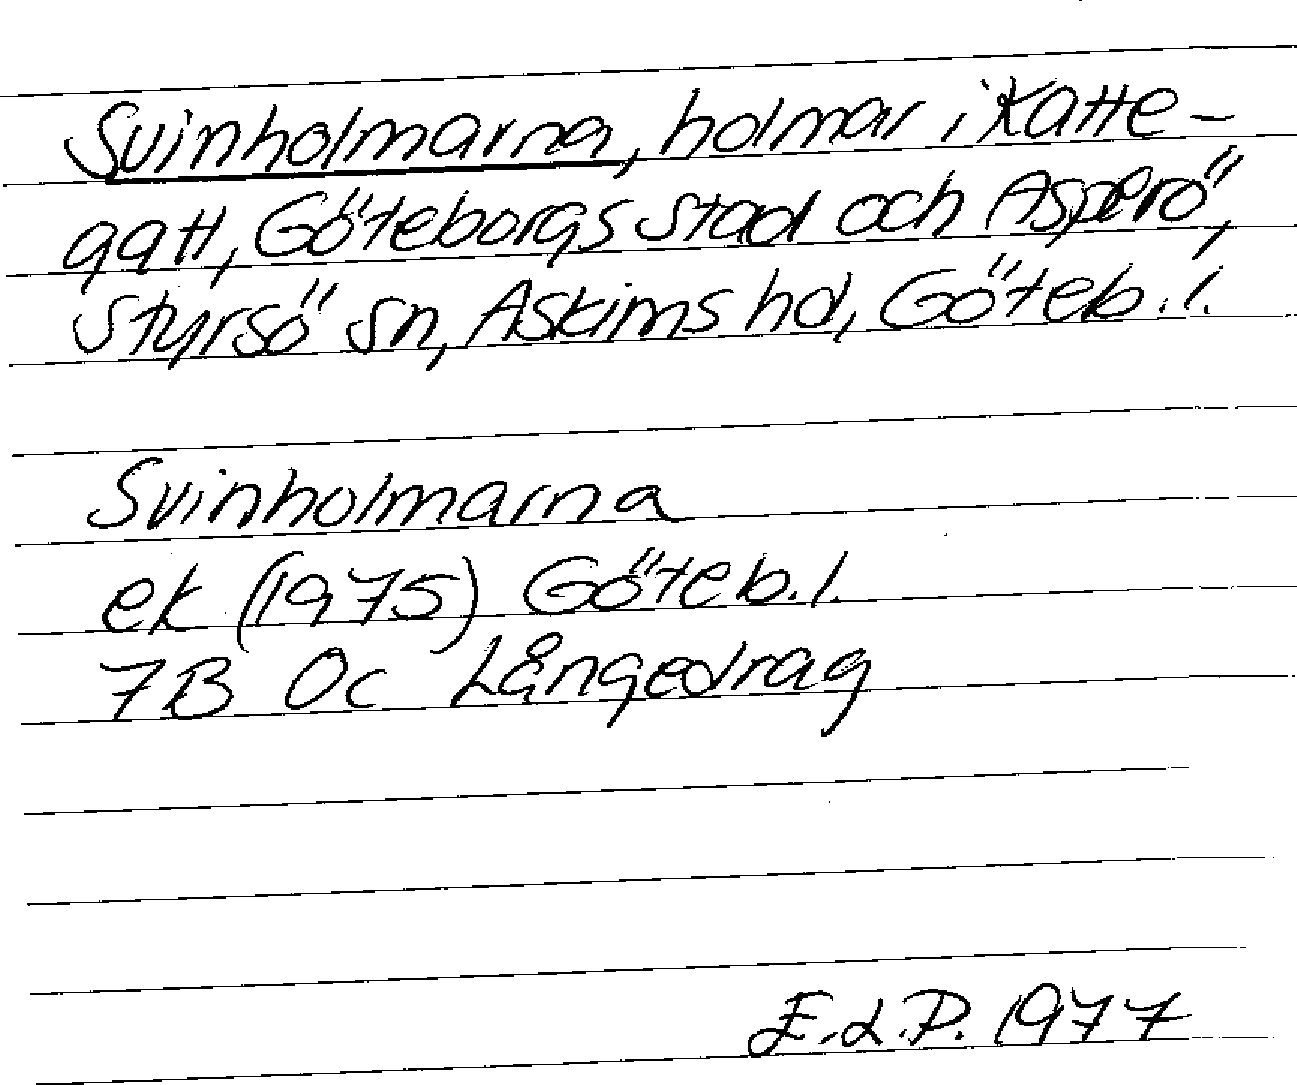 Svinholmarna, holmar i Katte-
gatt, Göteborgs stad och Asperö,
Styrsö sn, Askims hd, Göteb. l.
Svinholmarna
ek (1975) Göteb. l.
7B 0c Långedrag
E.L.P. 1977